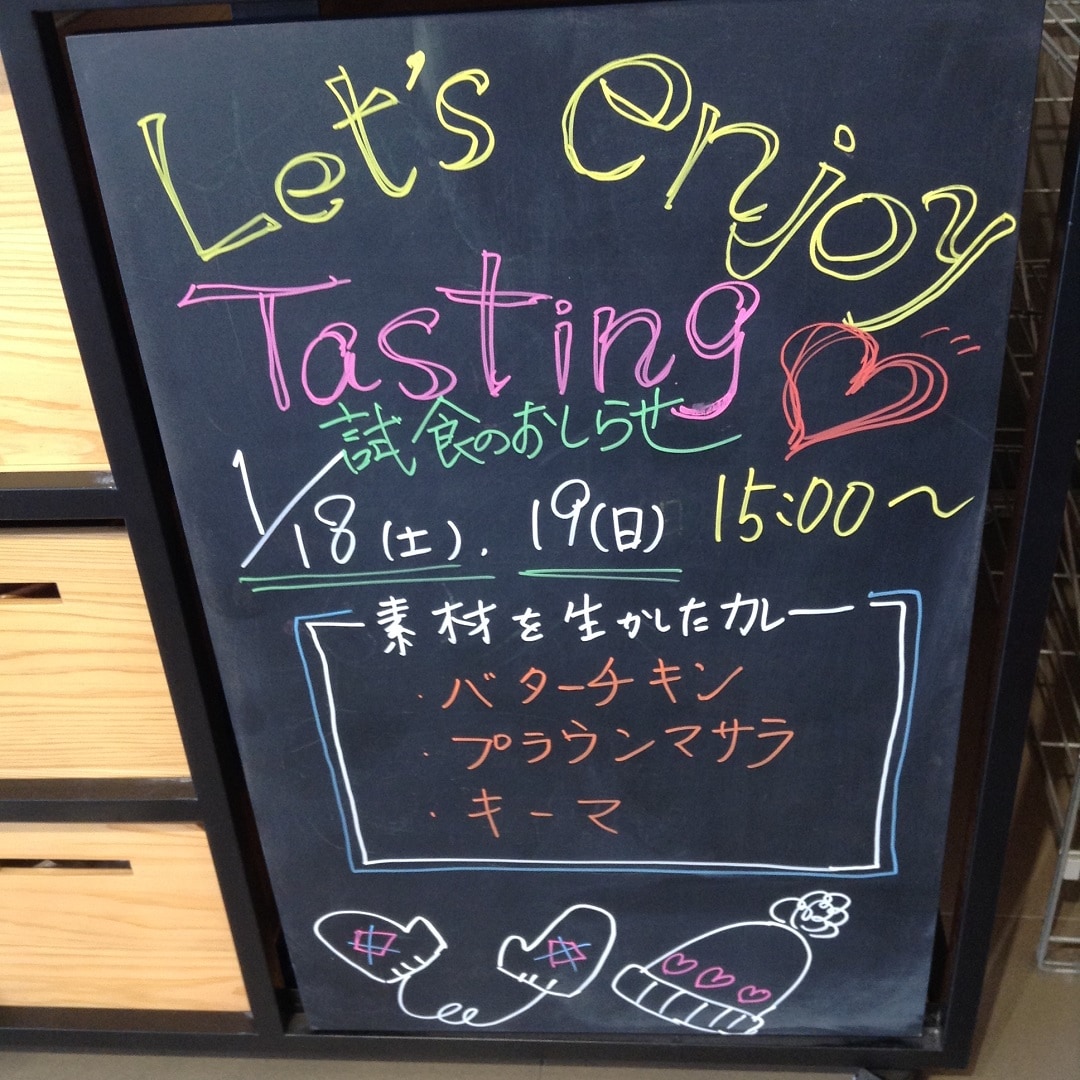 Let's enjoy
Tasting
試食のおしらせ
1/18(土). 19(日) 15:00〜
素材を生かしたカレー
・バターチキン
・プラウンマサラ
・キーマ